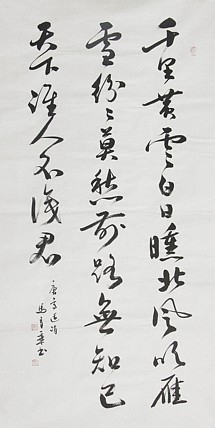 千里黄雲白日曛北風吹雁
雪紛々莫愁前路無知己
天下誰人不識君
唐高适詩